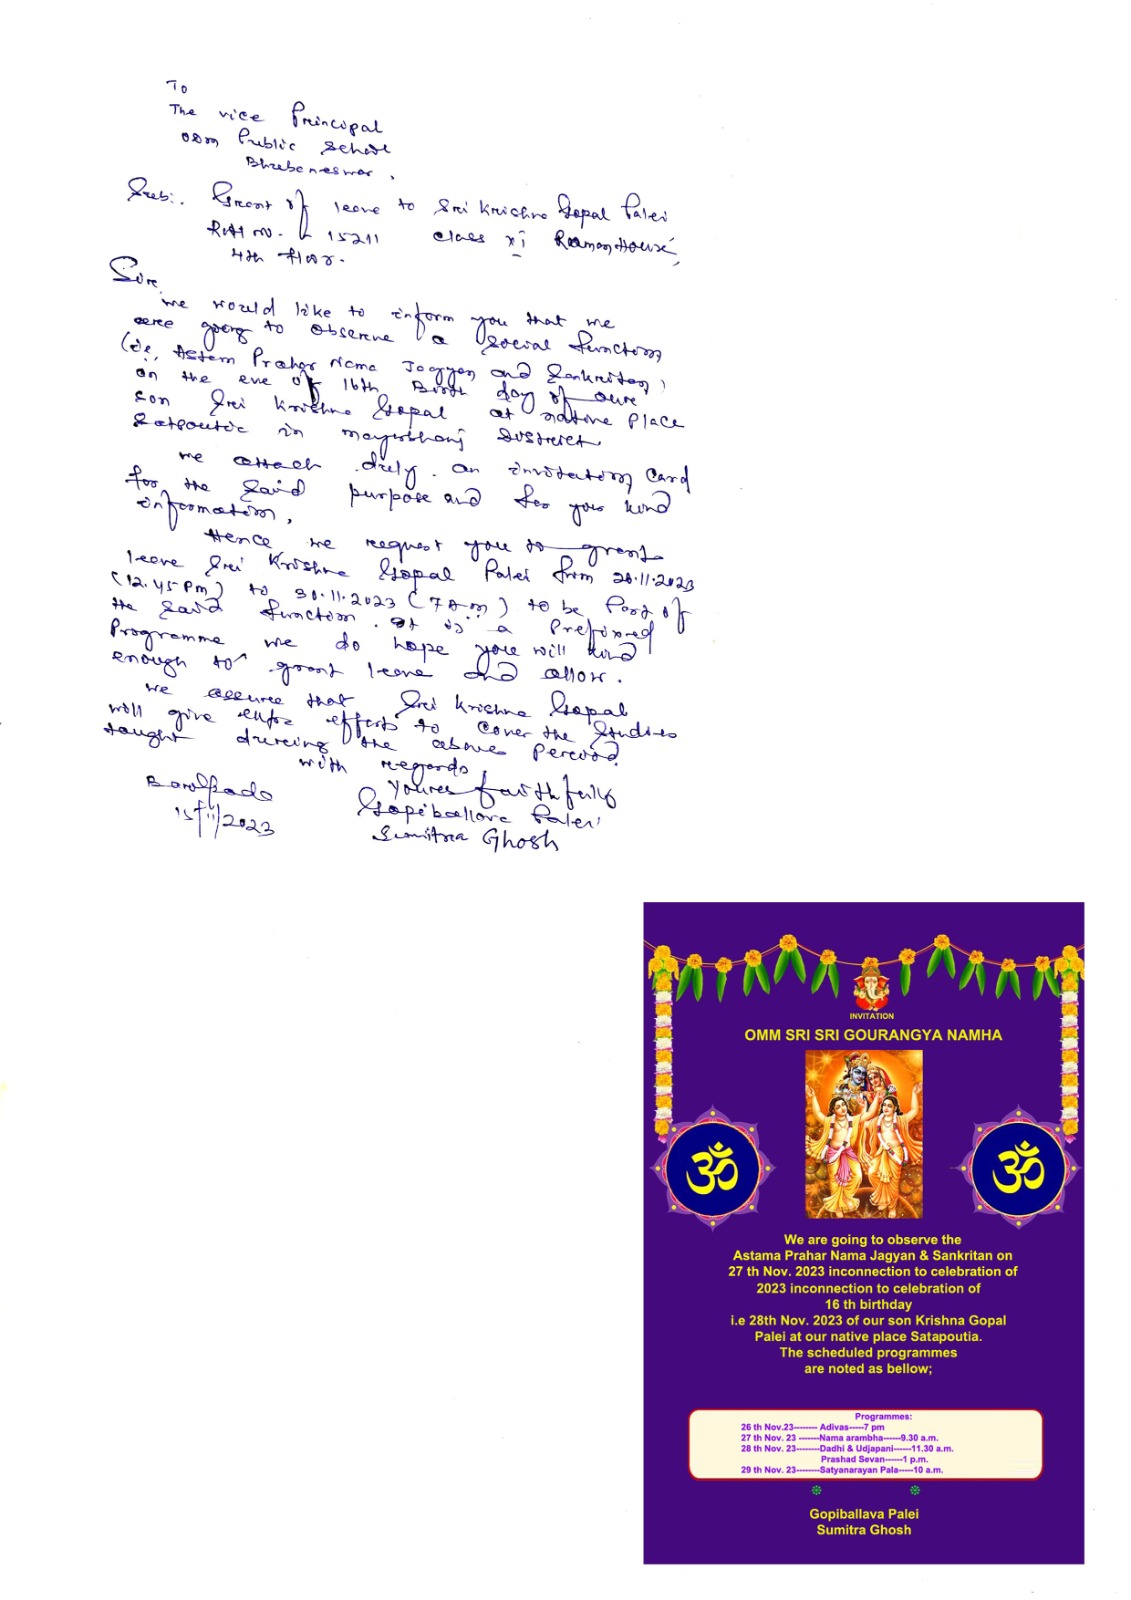 To
The vice Principal
ODM Public School
Bhubaneswar,
Sub:. Grant of leave to Sri Krishna Gopal Palei
Roll no. - 15211 class XI Raman House,
4th floor.
Sir,
we would like to inform you that we
are going to observe a social function
(ie, Astam Prahar Nama Jagyan and Sankritan)
on the eve of 16th Birth day of our
son Sri Krishna Gopal at native place
in mayurbhanj District
we attach duly an invitation card
for the said purpose and for your kind
information.
Hence we request you to grant
leave Sri Krishna Gopal Palei from 11.2023
(12.45 Pm) to 30.11.2023 (7 a m) to be Part of
the said function. It is a Prefixed
Programme we do hope you will kind
enough to grant leave and allow.
we assure that Sri Krishna Gopal
will give extra efforts to cover the studies
taught during the above Period.
with regards
Baripada Yours faithfully
15/11/2023 Gopiballava Palei
Sumitra Ghosh
INVITATION
OMM SRI SRI GOURANGYA NAMHA
ॐ ॐ
We are going to observe the
Astama Prahar Nama Jagyan & Sankritan on
27 th Nov. 2023 inconnection to celebration of
2023 inconnection to celebration of
16 th birthday
i.e 28th Nov. 2023 of our son Krishna Gopal
Palei at our native place Satapoutia.
The scheduled programmes
are noted as bellow;
Programmes:
26 th Nov.23-------- Adivas-----7 pm
27 th Nov. 23 -------Nama arambha------9.30 a.m.
28 th Nov. 23--------Dadhi & Udjapani------11.30 a.m.
Prashad Sevan------1 p.m.
29 th Nov. 23--------Satyanarayan Pala-----10 a.m.
Gopiballava Palei
Sumitra Ghosh